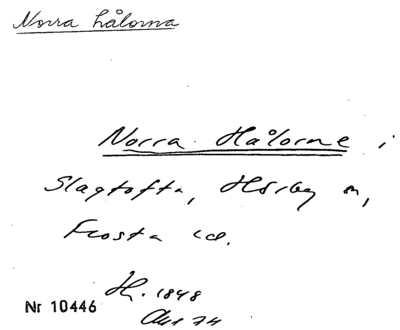 Norra hålorna
Norra Hålorne i
Slagtofta, Hörby sn,
Frosta hd.
H. 1848
Nr 10446
Akt 74